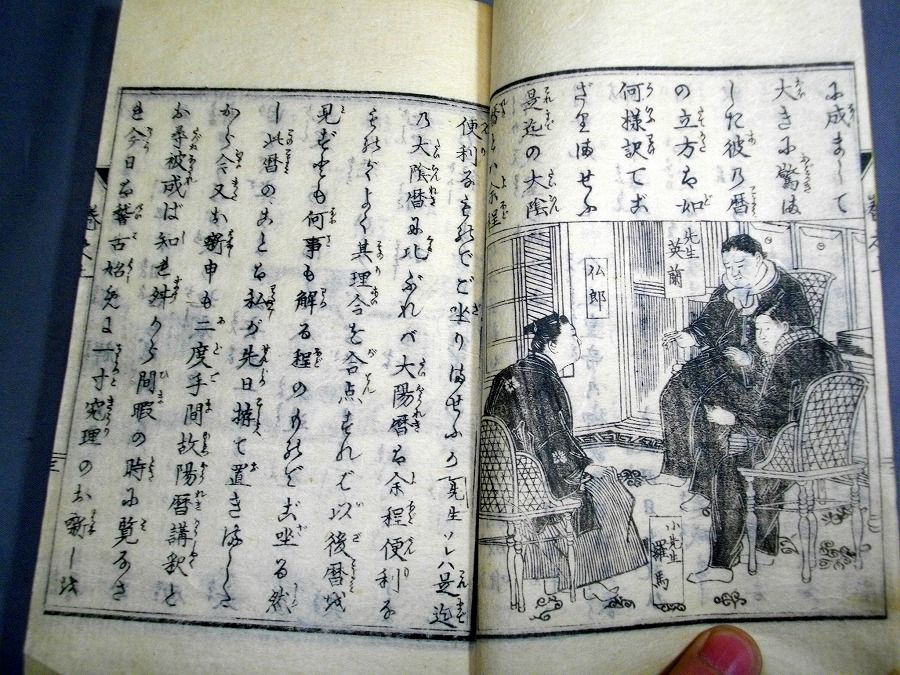 に成まして
大きに驚ま
した彼乃暦
の立方は如
何様訳でお
ざりませふ
是迄の大陰
暦とハ余程
先生
英蘭
弘郎
小先生
羅馬
便利なものでご坐りませふか「先生ソレハ是迄
乃大陰暦に比ぶれバ大陽暦は余程便利な
ものぞよく其理合を合点すれば以後暦を
見ずとも何事も解る程のものぞござる然
し此暦のことは私が先日
て置きました
から今又お噺申も二度手間故陽暦講釈と
お尋被成ば知れ舛から間暇の時に覧なさ
れ今日は稽古始めに一寸究理のお噺しを